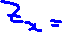 Zₓ =